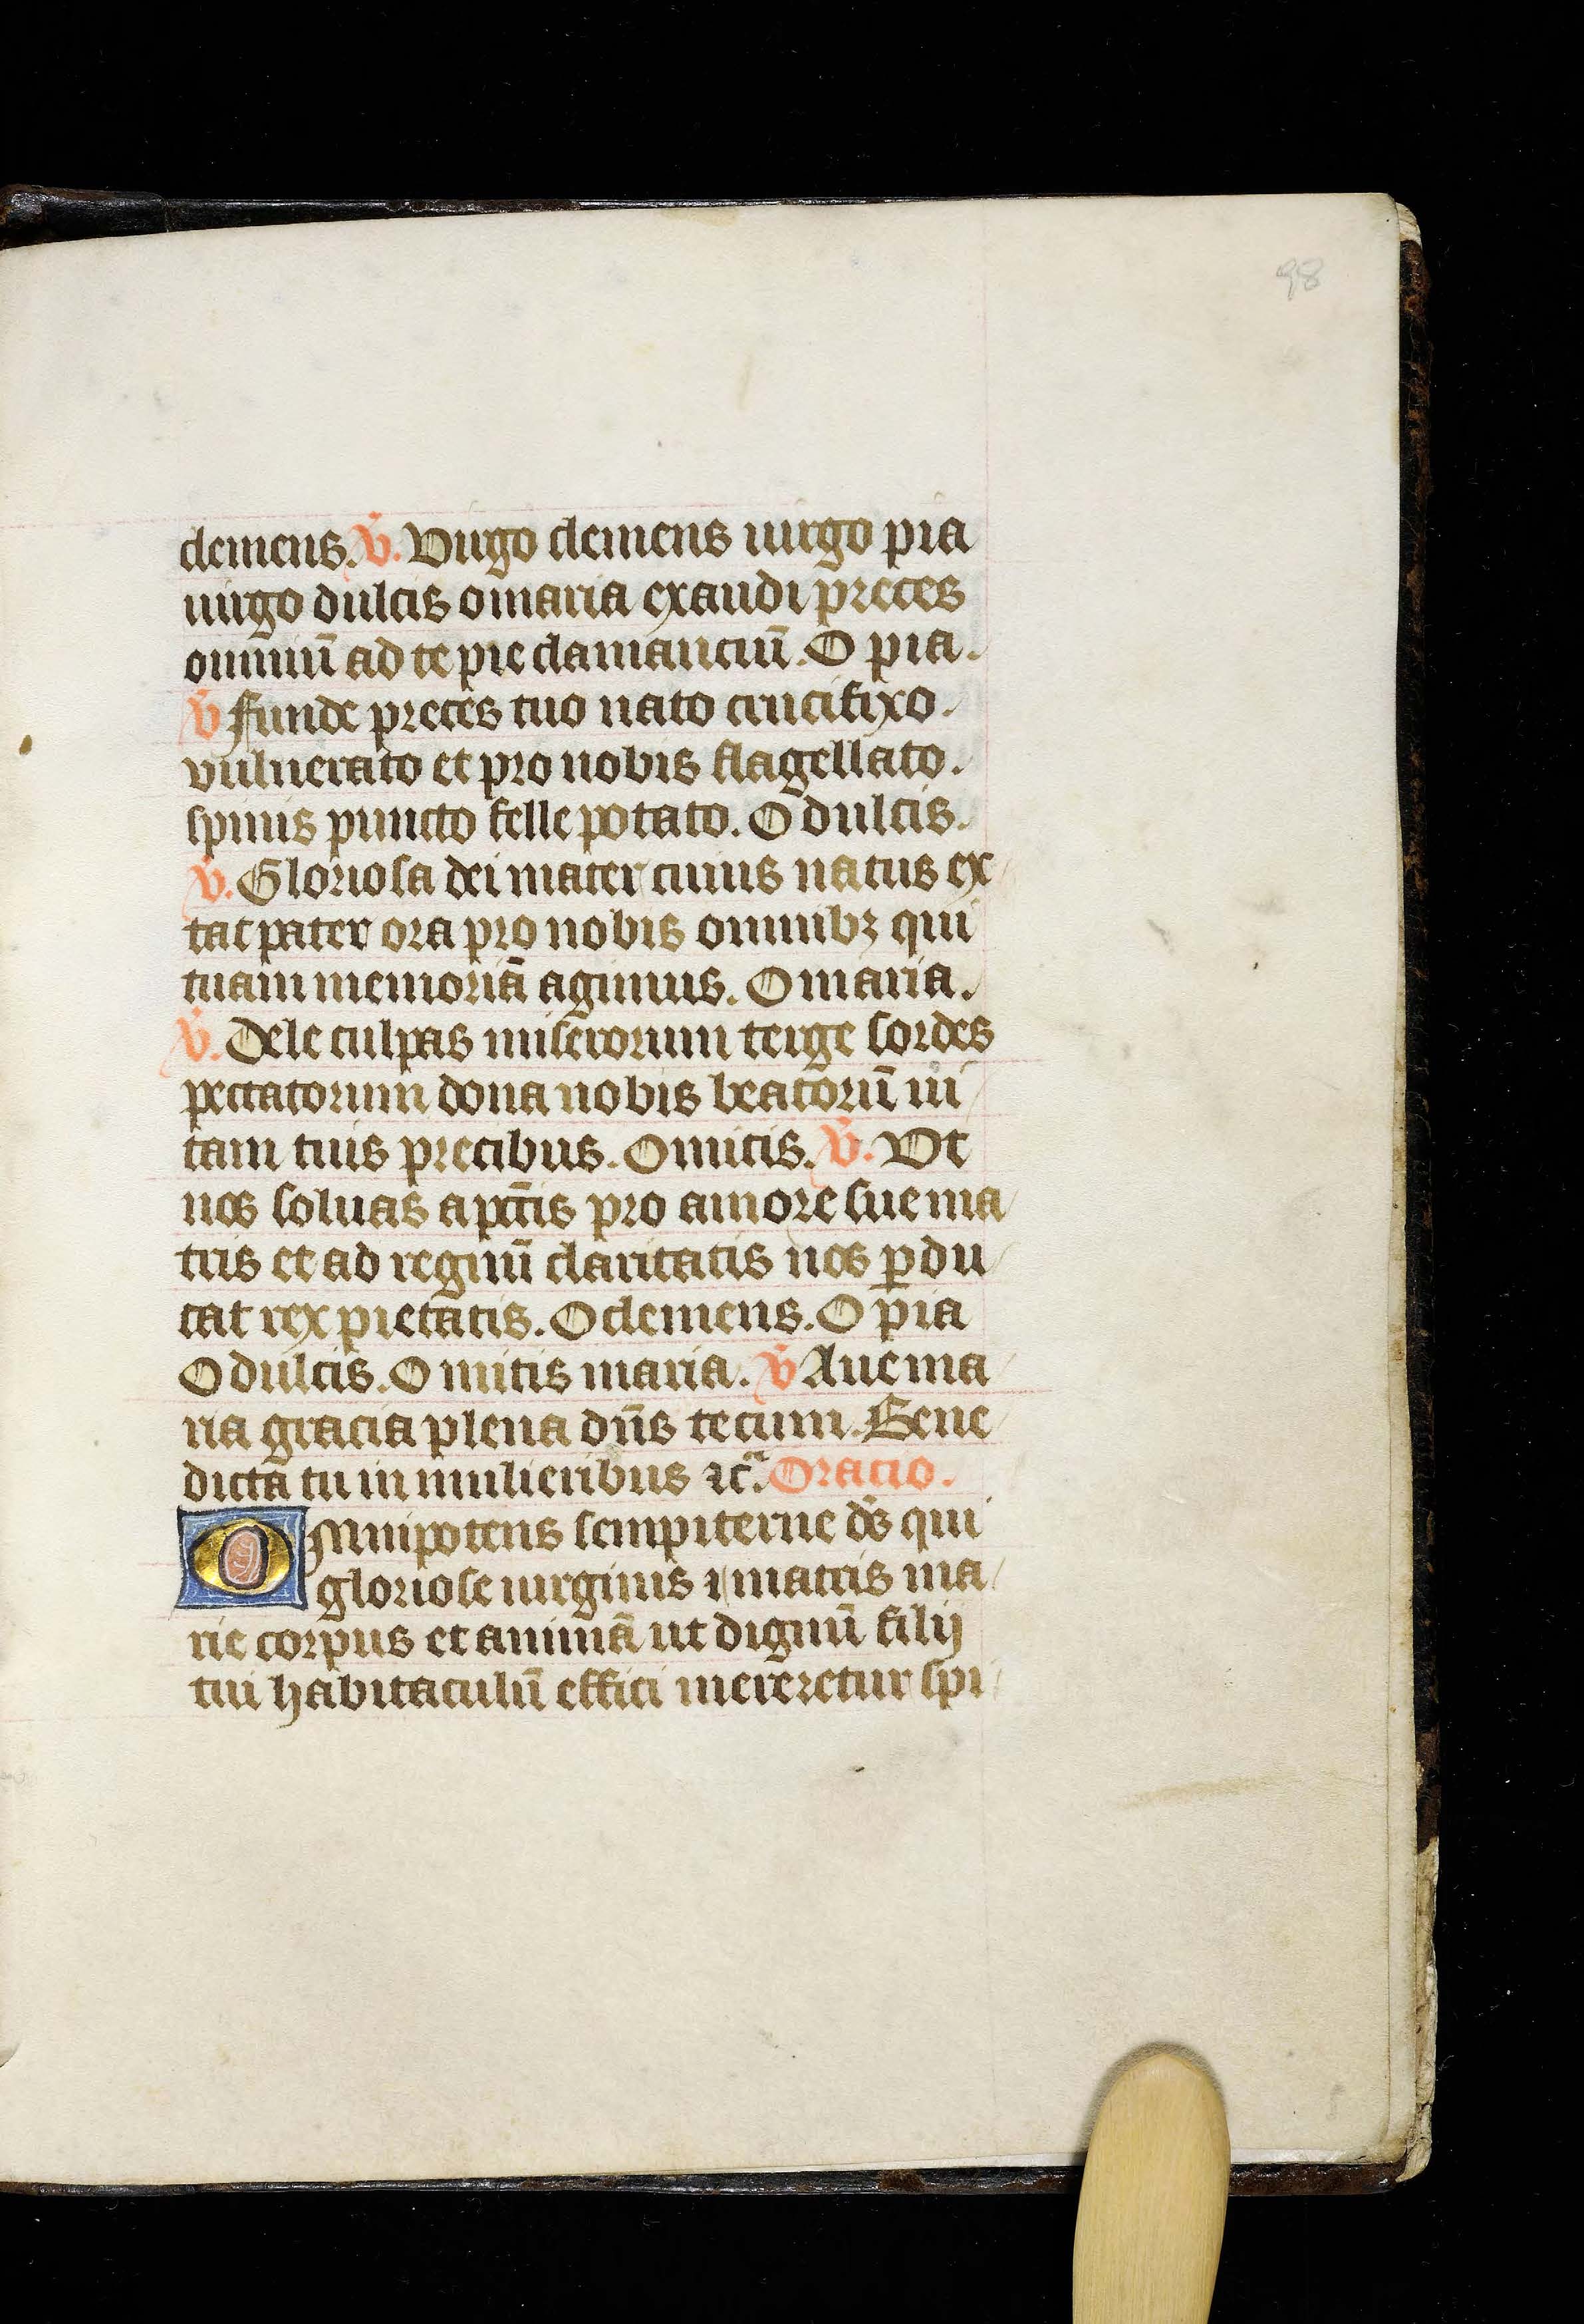 98
clemens. v̄. Virgo clemens uirgo pia
uirgo dulcis o maria exaudi preces
omniū ad te pie clamanciū. O pia.
v̄ Funde preces tuo nato crucifixo.
vulnerato et pro nobis flagellato.
spinis puncto felle potato. O dulcis.
v̄. Gloriosa dei mater cuius natus ex
tat pater ora pro nobis omnibꝫ qui
tuam memoriā agimus. O maria.
v̄. Dele culpas miserorum terge sordes
peccatorum dona nobis beatorū ui
tam tuis precibus. O mitis. v̄. Vt
nos soluas a pctīs pro amore sue ma
tris et ad regnū claritatis nos ꝑdu
cat rex pietatis. O clemens. O pia
O dulcis. O mitis maria. v̄ Aue ma
ria gracia plena dn̄s tecum. Bene
dicta tu in mulieribus ⁊cᷓ. Oracio.
Omnipotens sempiterne ds̄ qui
gloriose uirginis ⁊ matris ma
rie corpus et animā ut dignū filij
tui habitaculū effici mereretur spi